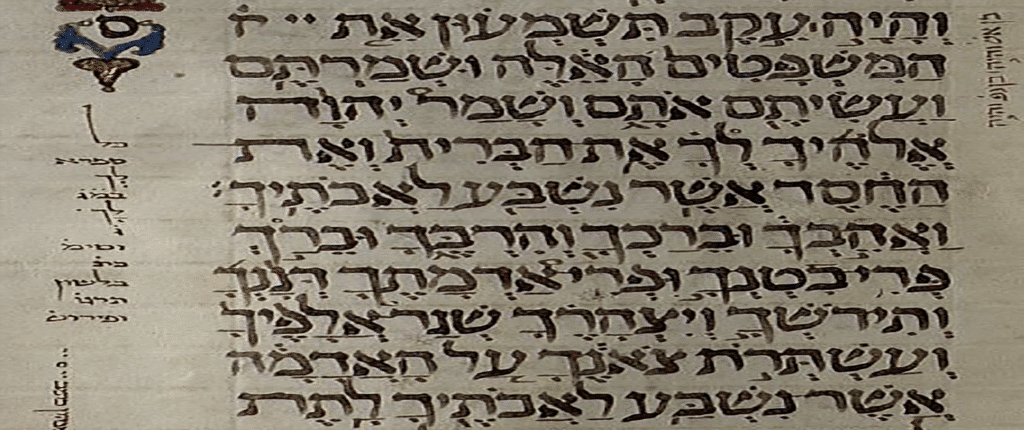 וְהָיָה עֵקֶב תִּשְׁמְעוּן אֵת
הַמִּשְׁפָּטִים הָאֵלֶּה וּשְׁמַרְתֶּם
וַעֲשִׂיתֶם אֹתָם וְשָׁמַר יְהוָה
אֱלֹהֶיךָ לְךָ אֶת הַבְּרִית וְאֶת
הַחֶסֶד אֲשֶׁר נִשְׁבַּע לַאֲבֹתֶיךָ
וַאֲהֵבְךָ וּבֵרַכְךָ וְהִרְבֶּךָ וּבֵרַךְ
פְּרִי בִטְנְךָ וּפְרִי אַדְמָתֶךָ דְּגָנְךָ
וְתִירֹשְׁךָ וְיִצְהָרֶךָ שְׁגַר אֲלָפֶיךָ
וְעַשְׁתְּרֹת צֹאנֶךָ עַל הָאֲדָמָה
אֲשֶׁר נִשְׁבַּע לַאֲבֹתֶיךָ לָתֶת
ס
בלשון